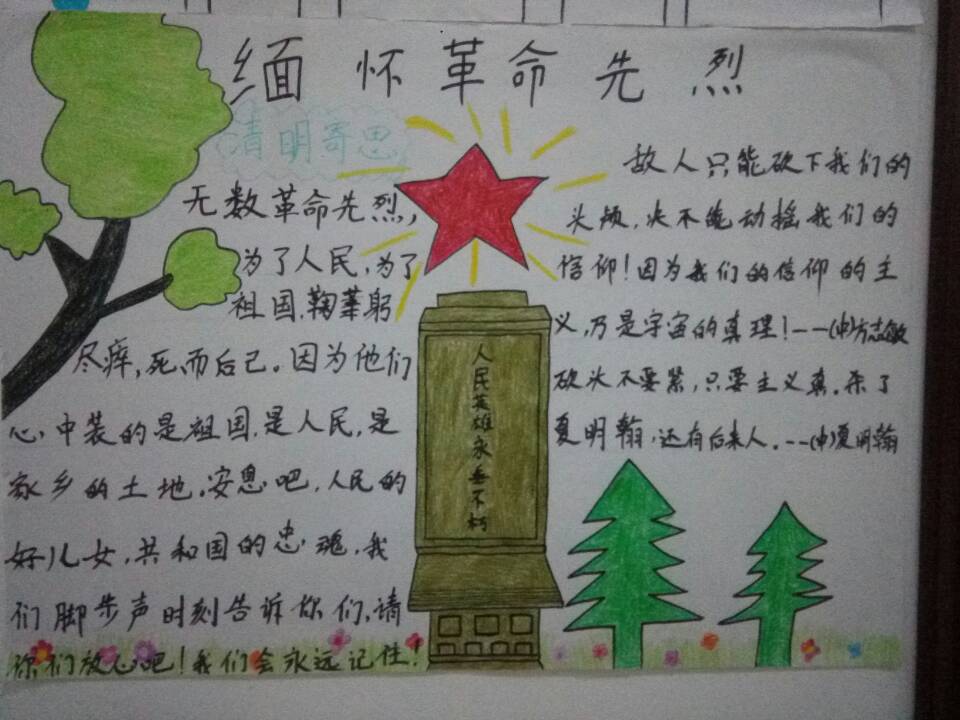 缅怀革命先烈
清明寄思
无数革命先烈,
为了人民,为了
祖国,鞠躬
尽瘁,死而后已。因为他们
心中装的是祖国,是人民,是
家乡的土地。安息吧,人民的
好儿女,共和国的忠魂,我
们脚步声时刻告诉你们,请
你们放心吧!我们会永远记住!
人民英雄永垂不朽
敌人只能砍下我们的
头颅,决不能动摇我们的
信仰!因为我们的信仰的主
义,乃是宇宙的真理!---(中)方志敏
砍头不要紧,只要主义真。杀了
夏明翰,还有后来人。---(中)夏明翰